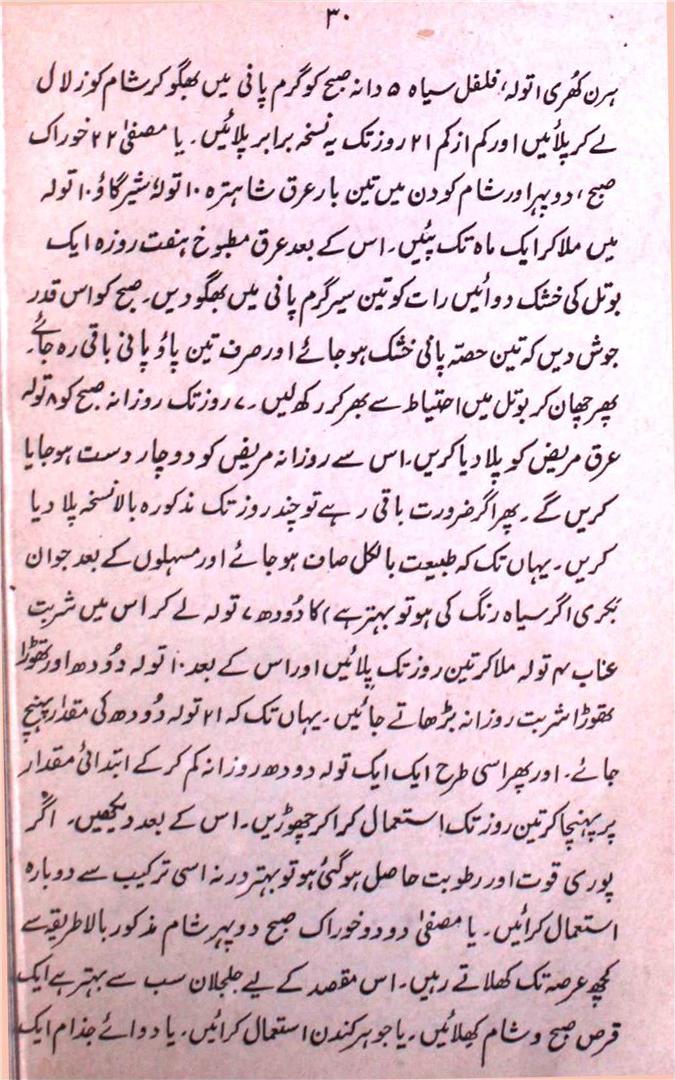 ۳۰
ہرن کھُری ا تولہ، فلفل سیاہ ۵ دانہ صبح کو گرم پانی میں بھگو کر شام کو زلال
لے کر پلائیں اور کم از کم ۲۱ روز تک یہ نسخہ برابر پلائیں۔ یا مصفیٰ ۲۲ خوراک
صبح، دوپہر اور شام کو دن میں تین بار عرق شاہترہ ۱۰ تولہ شیر گاؤ ۱۰ تولہ
میں ملا کر ایک ماہ تک پئیں۔ اس کے بعد عرق مطبوخ ہفت روزہ ایک
بوتل کی خشک دوائیں رات کو تین سیر گرم پانی میں بھگو دیں۔ صبح کو اس قدر
جوش دیں کہ تین حصہ پانی خشک ہو جائے اور صرف تین پاؤ پانی باقی رہ جائے۔
پھر چھان کر بوتل میں احتیاط سے بھر کر رکھ لیں۔ ۷ روز تک روزانہ صبح کو ۸ تولہ
عرق مریض کو پلا دیا کریں۔ اس سے روزانہ مریض کو دو چار دست ہو جایا
کریں گے۔ پھر اگر ضرورت باقی رہے تو چند روز تک مذکورہ بالا نسخہ پلا دیا
کریں۔ یہاں تک کہ طبیعت بالکل صاف ہو جائے اور مسہلوں کے بعد جوان
بکری اگر سیاہ رنگ کی ہو تو بہتر ہے) کا دُودھ ۷ تولہ لے کر اس میں شربت
عناب ۴ تولہ ملا کر تین روز تک پلائیں اور اس کے بعد ۱۰ تولہ دُودھ اور تھوڑا
تھوڑا شربت روزانہ بڑھاتے جائیں۔ یہاں تک کہ ۲۱ تولہ دُودھ کی مقدار پہنچ
جائے۔ اور پھر اسی طرح ایک ایک تولہ دودھ روزانہ کم کر کے ابتدائی مقدار
پر پہنچا کر تین روز تک استعمال کرا کر چھوڑیں۔ اس کے بعد دیکھیں۔ اگر
پوری قوت اور رطوبت حاصل ہو گئی ہو تو بہتر ورنہ اسی ترکیب سے دوبارہ
استعمال کرائیں۔ یا مصفیٰ دو دو خوراک صبح دوپہر شام مذکور بالا طریقہ سے
کچھ عرصہ تک کھلاتے رہیں۔ اس مقصد کے لیے جلجلان سب سے بہتر ہے ایک
قرص صبح و شام کھلائیں۔ یا جوہر کندن استعمال کرائیں۔ یا دوائے جذام ایک